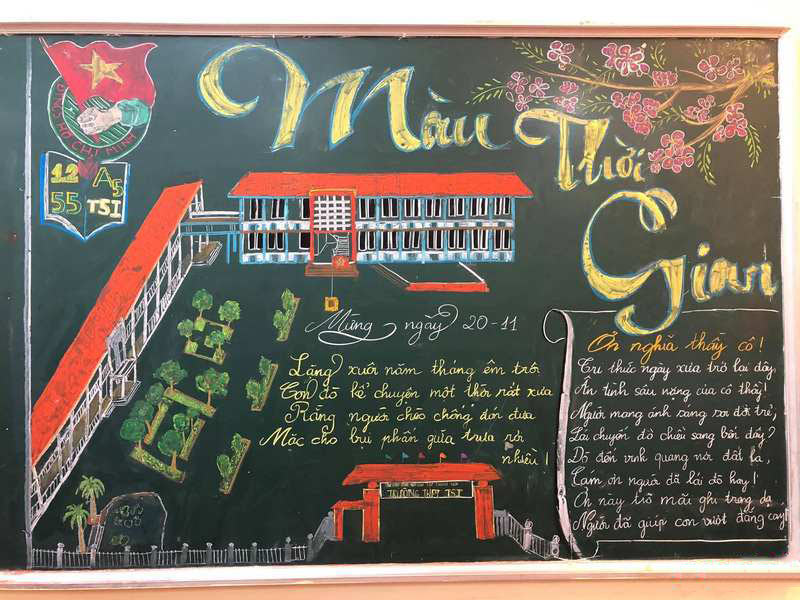 Màu Thời Gian
ĐOÀN TNCS HỒ CHÍ MINH
12 A5
55 TSI
Mừng ngày 20-11
Lặng xuôi năm tháng êm trôi
Con đò kể chuyện một thời rất xưa
Rằng người chèo chống đón đưa
Mặc cho bụi phấn giữa trưa rơi
nhiều!
TRƯỜNG THPT TSI
Ơn nghĩa thầy cô!
Tri thức ngày xưa trở lại đây
Ân tình sâu nặng của cô thầy!
Người mang ánh sáng soi đời trẻ,
Lái chuyến đò chiều sang bến đầy?
Đò đến vinh quang nơi đất lạ,
Cám ơn người đã lái đò hay!
Ơn này trò mãi ghi trong dạ
Người đã giúp con vượt đắng cay!